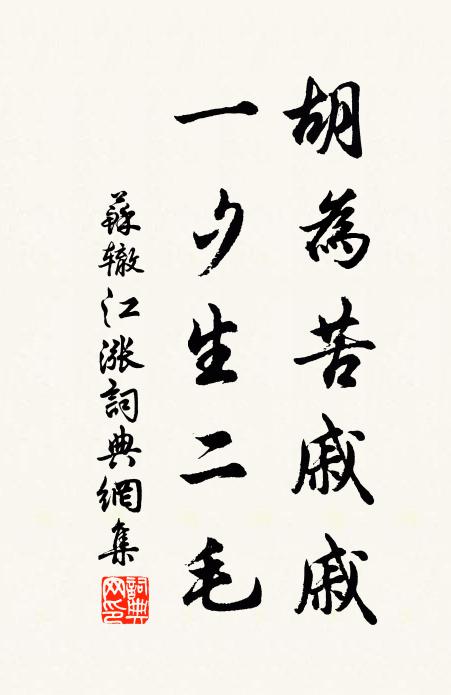 胡為苦戚戚
一夕生二毛
蘇辙江漲詞典網集
詞典
网印